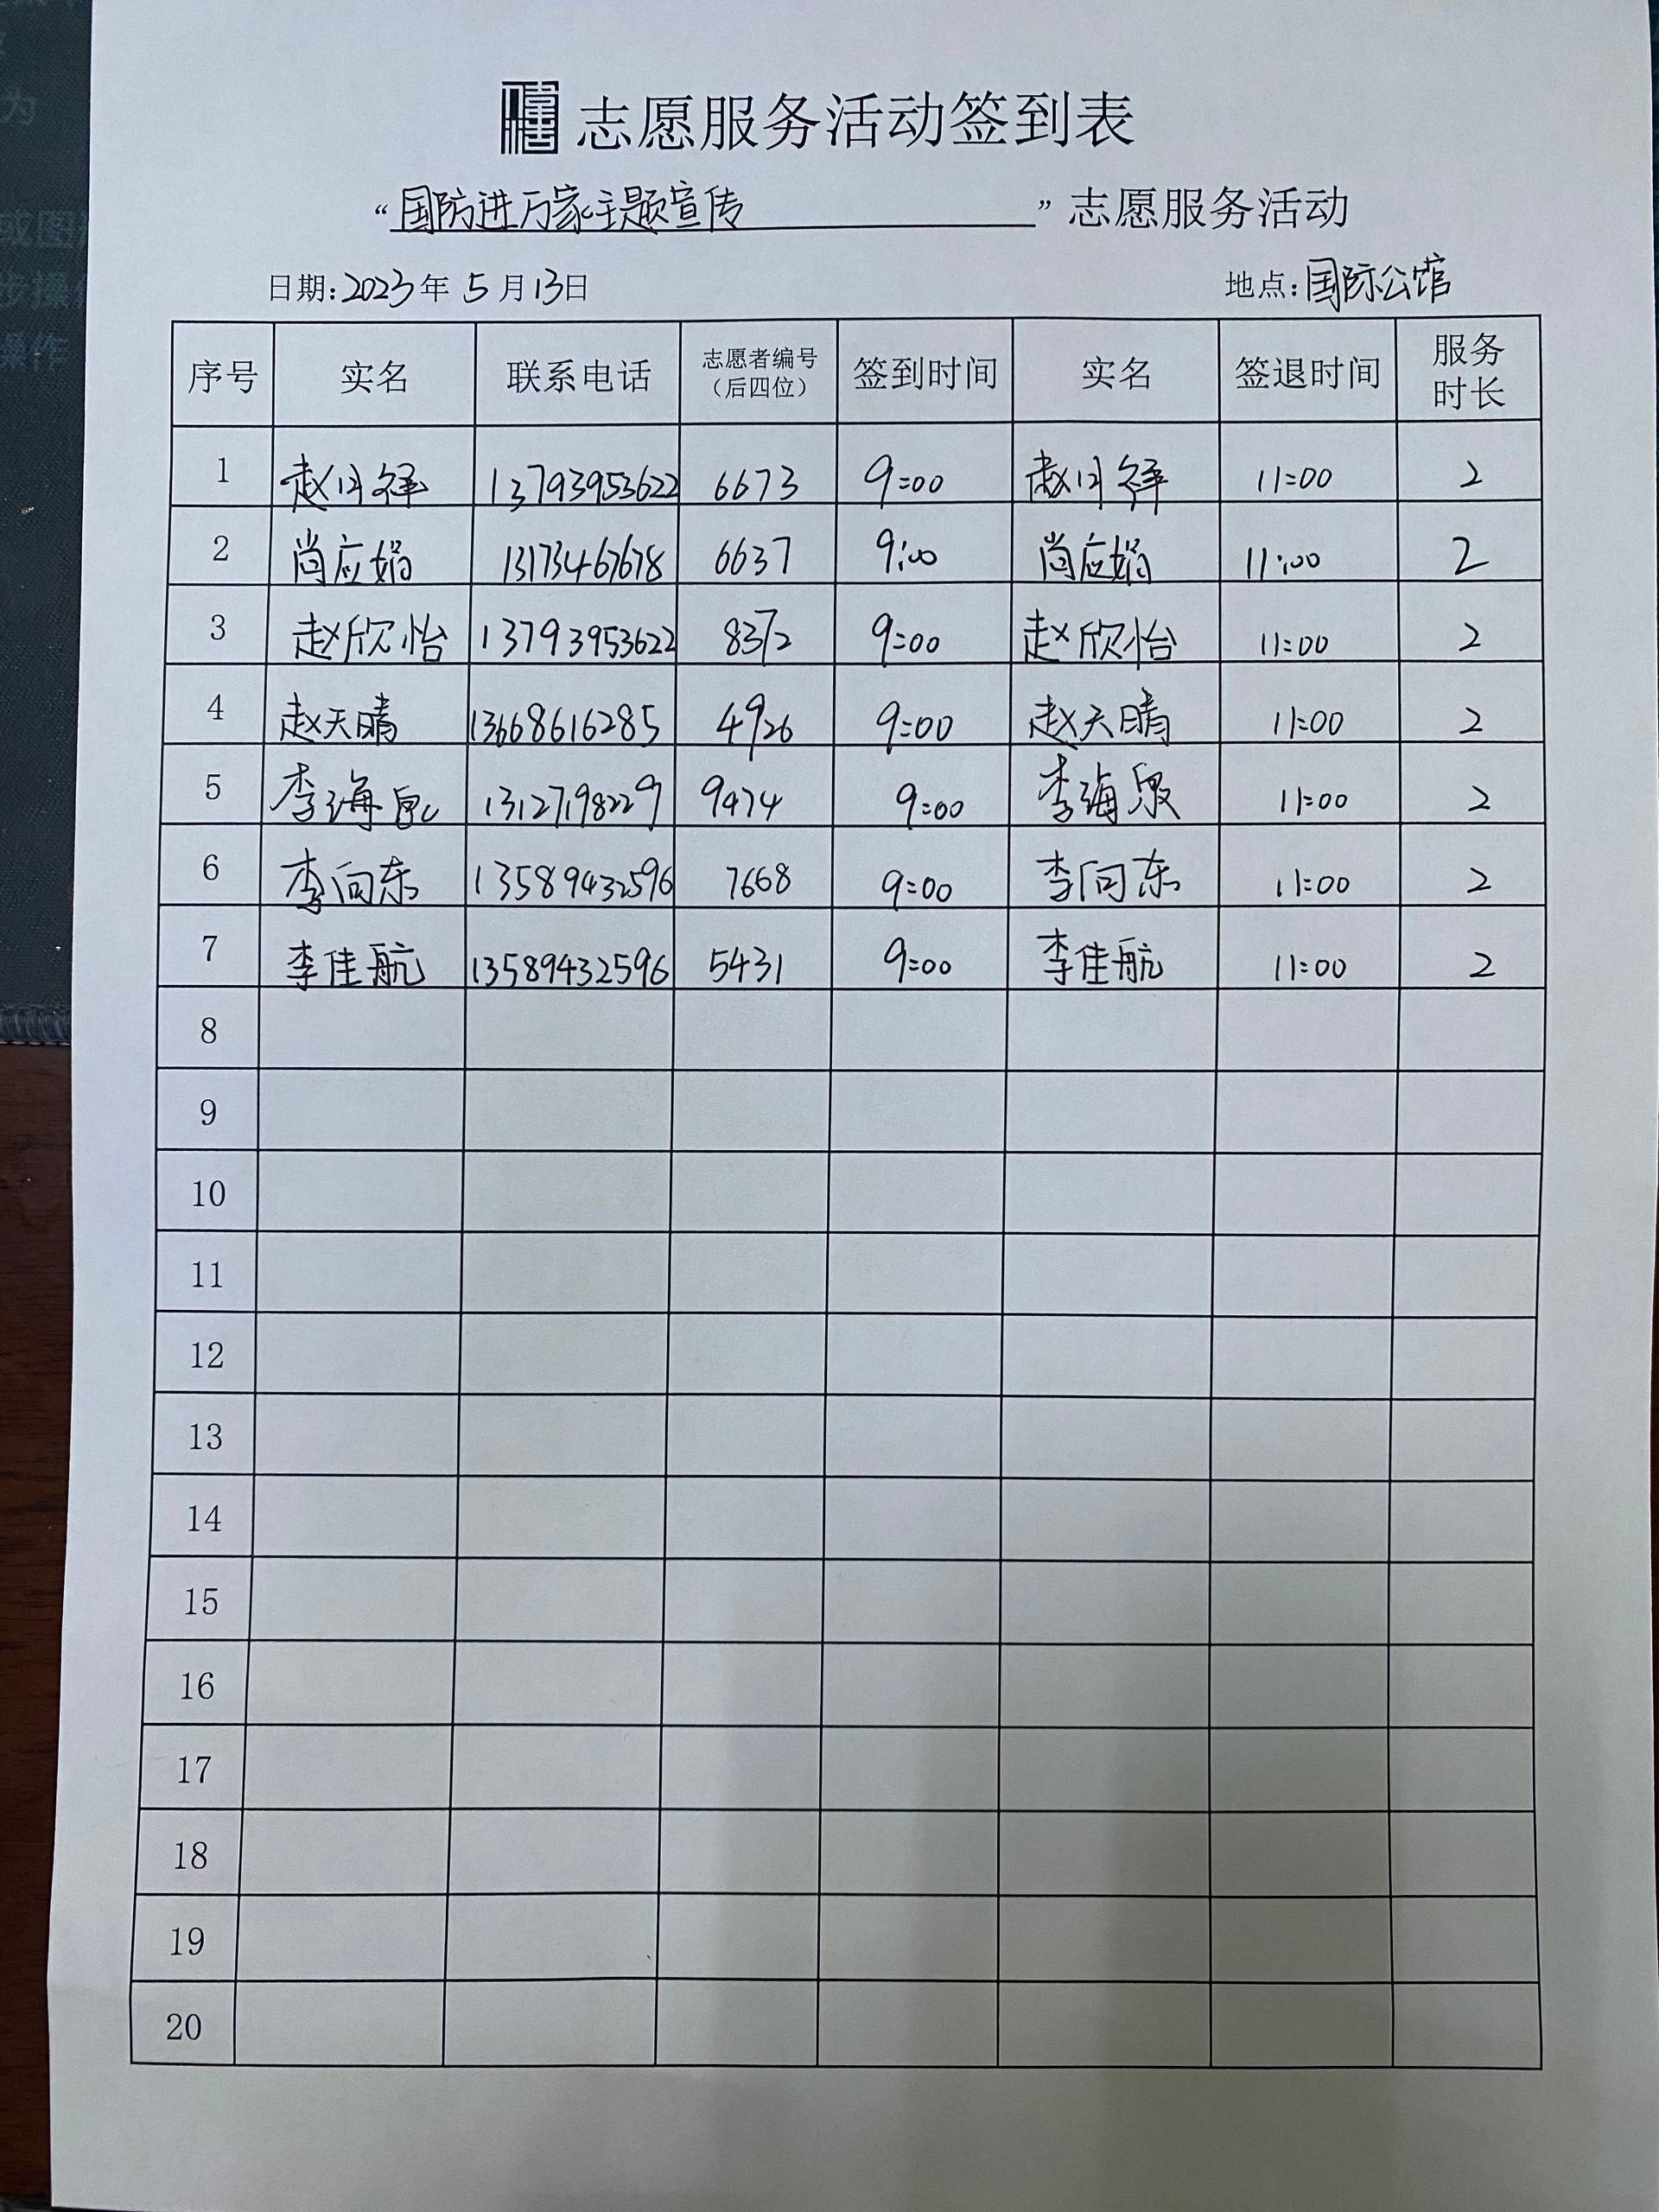 志愿服务活动签到表
“国防进万家主题宣传”志愿服务活动
日期:2023年5月13日 地点:国际公馆
序号 实名 联系电话 志愿者编号（后四位） 签到时间 实名 签退时间 服务时长
1 赵日祥 13793953622 6673 9:00 赵日祥 11:00 2
2 尚应娟 13173467678 6637 9:00 尚应娟 11:00 2
3 赵欣怡 13793953622 8372 9:00 赵欣怡 11:00 2
4 赵天晴 13668616285 4926 9:00 赵天晴 11:00 2
5 李海泉 13127198229 9474 9:00 李海泉 11:00 2
6 李向东 13589432596 7668 9:00 李向东 11:00 2
7 李佳航 13589432596 5431 9:00 李佳航 11:00 2
8
9
10
11
12
13
14
15
16
17
18
19
20